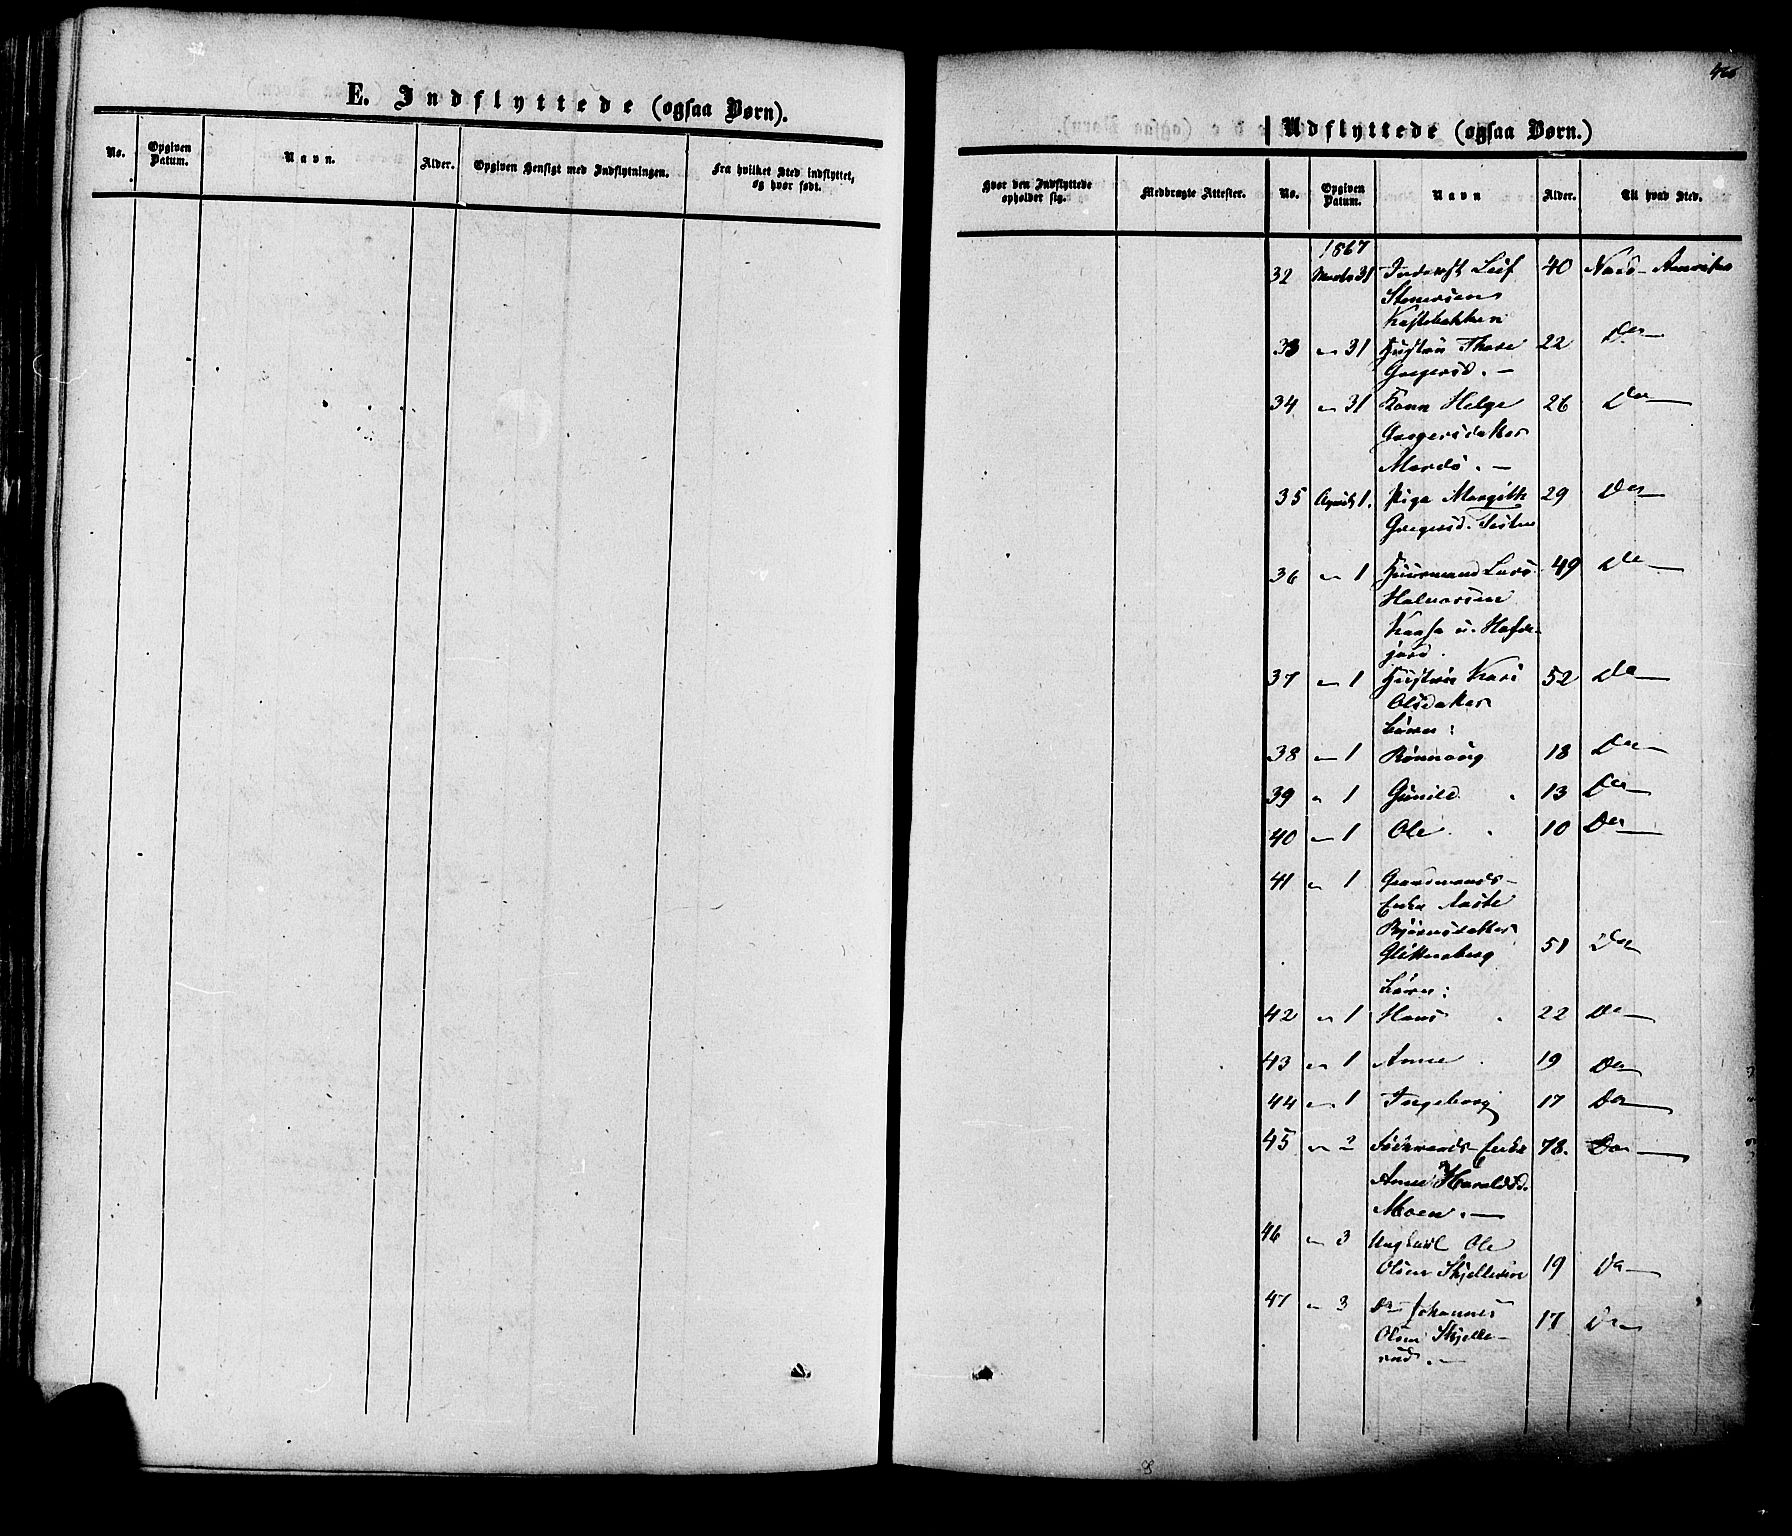 E. Indflyttede (ogsaa Børn).
No.
Opgiven Datum.
Navn.
Alder.
Opgiven Hensigt med Indflytningen.
Fra hvilket Sted indflyttet, og hvor født.
Udflyttede (ogsaa Børn.)
Hvor den Indflyttede opholder sig.
Medbragte Attester.
No.
Opgiven Datum.
Navn
Alder.
Til hvad Sted.
1867
32 Marts 31 Leif 40 Nord-Amerika
Stenersen
33 " 31 Hustru Thore 22 Do
Gregersd. —
34 " 31 Kone Helge 26 Do
Gregersdatter
Mardö. —
35 April 1. Pige Margith 29 Do
Gregersd.
36 " 1 Huusmand Lars 49 Do
Halvorsen
Kaasa u.
jord.
37 " 1 Hustru Kari 52 Do
Olsdatter
Børn:
38 " 1 Rönnaug 18 Do
39 " 1 Gunild 13 Do
40 " 1 Ole 10 Do
41 " 1 Gaardmands-
Enke Aaste
Bjørnsdatter
Glittenberg 51 Do
Børn:
42 " 1 Hans 22 Do
43 " 1 Anne 19 Do
44 " 1 Ingeborg 17 Do
45 " 2 Enke 78. Do
Anne Haraldsd.
Moen. —
46 " 3 Ungkarl Ole
Olsen 19 Do
47 " 3 Do Johannes
Olsen Skjelle- 17 Do
rud. —